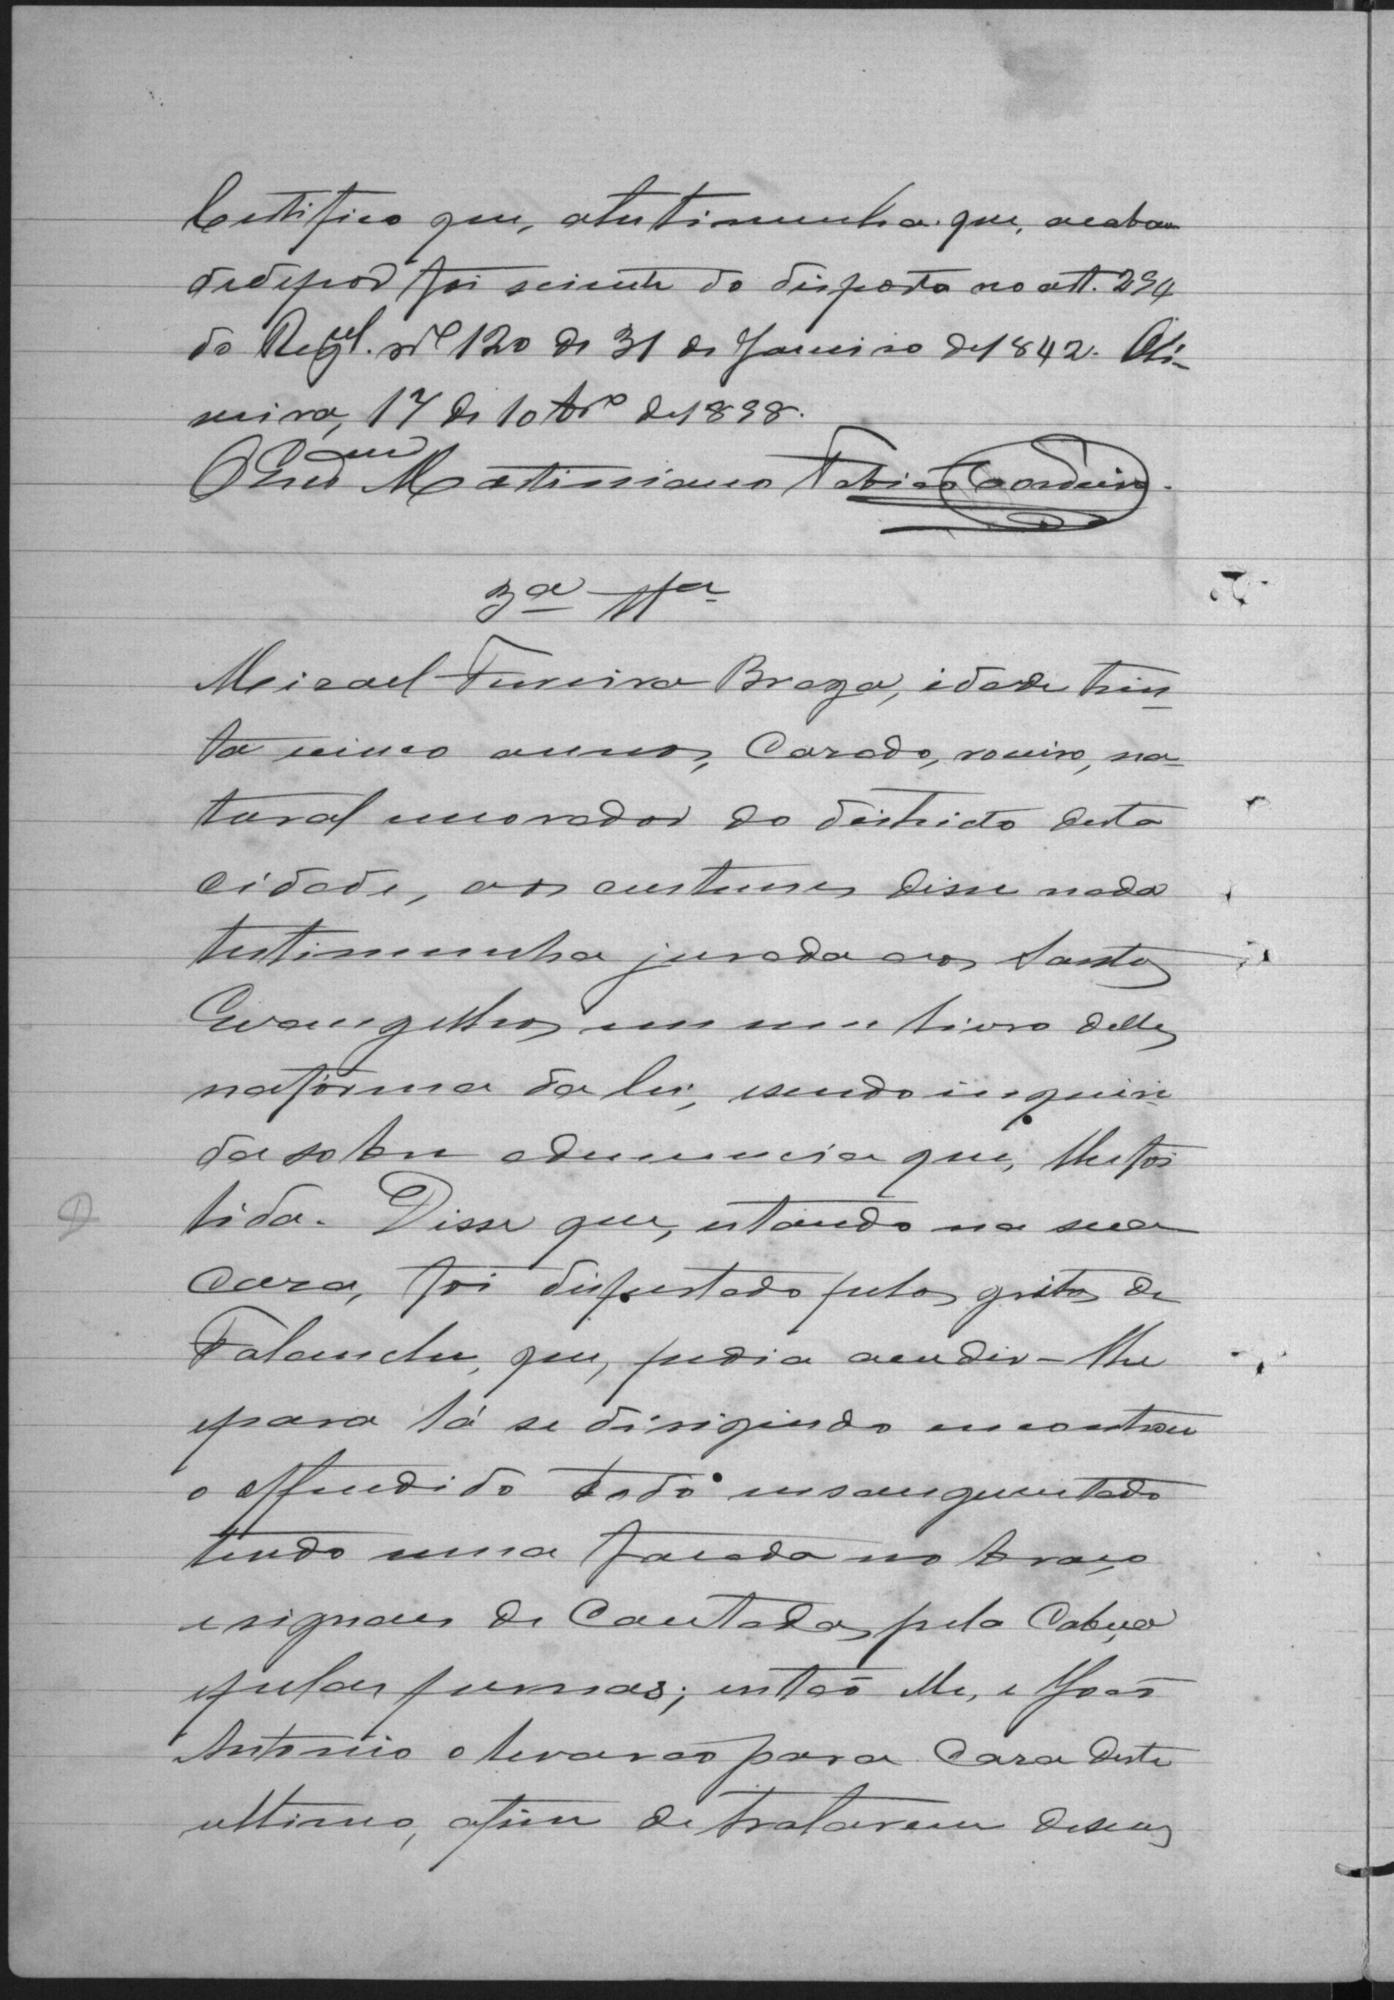 Certifico que, a testimunha que, acabou
de depor foi sciente do disposto no art. 294
do Regul. nº 120 de 31 de Janeiro de 1842. Oli-
veira, 17 de 10brº de 1898.
O Escrivam Martiniano Fabiano Cordeiro.
3ª Ttª
Misael Ferreira Braga, idade trin
ta cinco annos, casado, roceiro, na
tural e morador do districto desta
cidade, aos custumes disse nada
testimunha jurada aos Santos
Evangelhos em um livro delles
na fórma da lei, e sendo inquiri
da sobre a denuncia que, lhe foi
lida. Disse que, estando na sua
casa, foi dispertado pelos gritos de
que, pedia acudir-lhe
e para lá se dirigindo encontrou
o offendido todo ensanguentado
tendo uma facada no braço
e signaes de cacetadas pela cabeça
e pelas pernas; então elle, e João
Antonio o levarão para casa deste
ultimo, afim de tratarem de seus